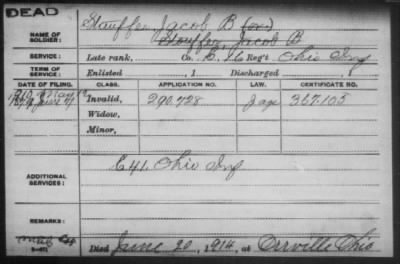 DEAD
NAME OF SOLDIER: Stauffer, Jacob B (or)
Stouffer, Jacob B
SERVICE: Late rank, Co. E, 16 Reg't Ohio Inf
TERM OF SERVICE: Enlisted , 1 Discharged , 1
DATE OF FILING. CLASS. APPLICATION NO. LAW. CERTIFICATE NO.
Invalid, 290.728 Jap 367.105
Widow,
Minor,
ADDITIONAL SERVICES: E 41. Ohio Inf
REMARKS:
Died June 20, 1914, at Orrville Ohio